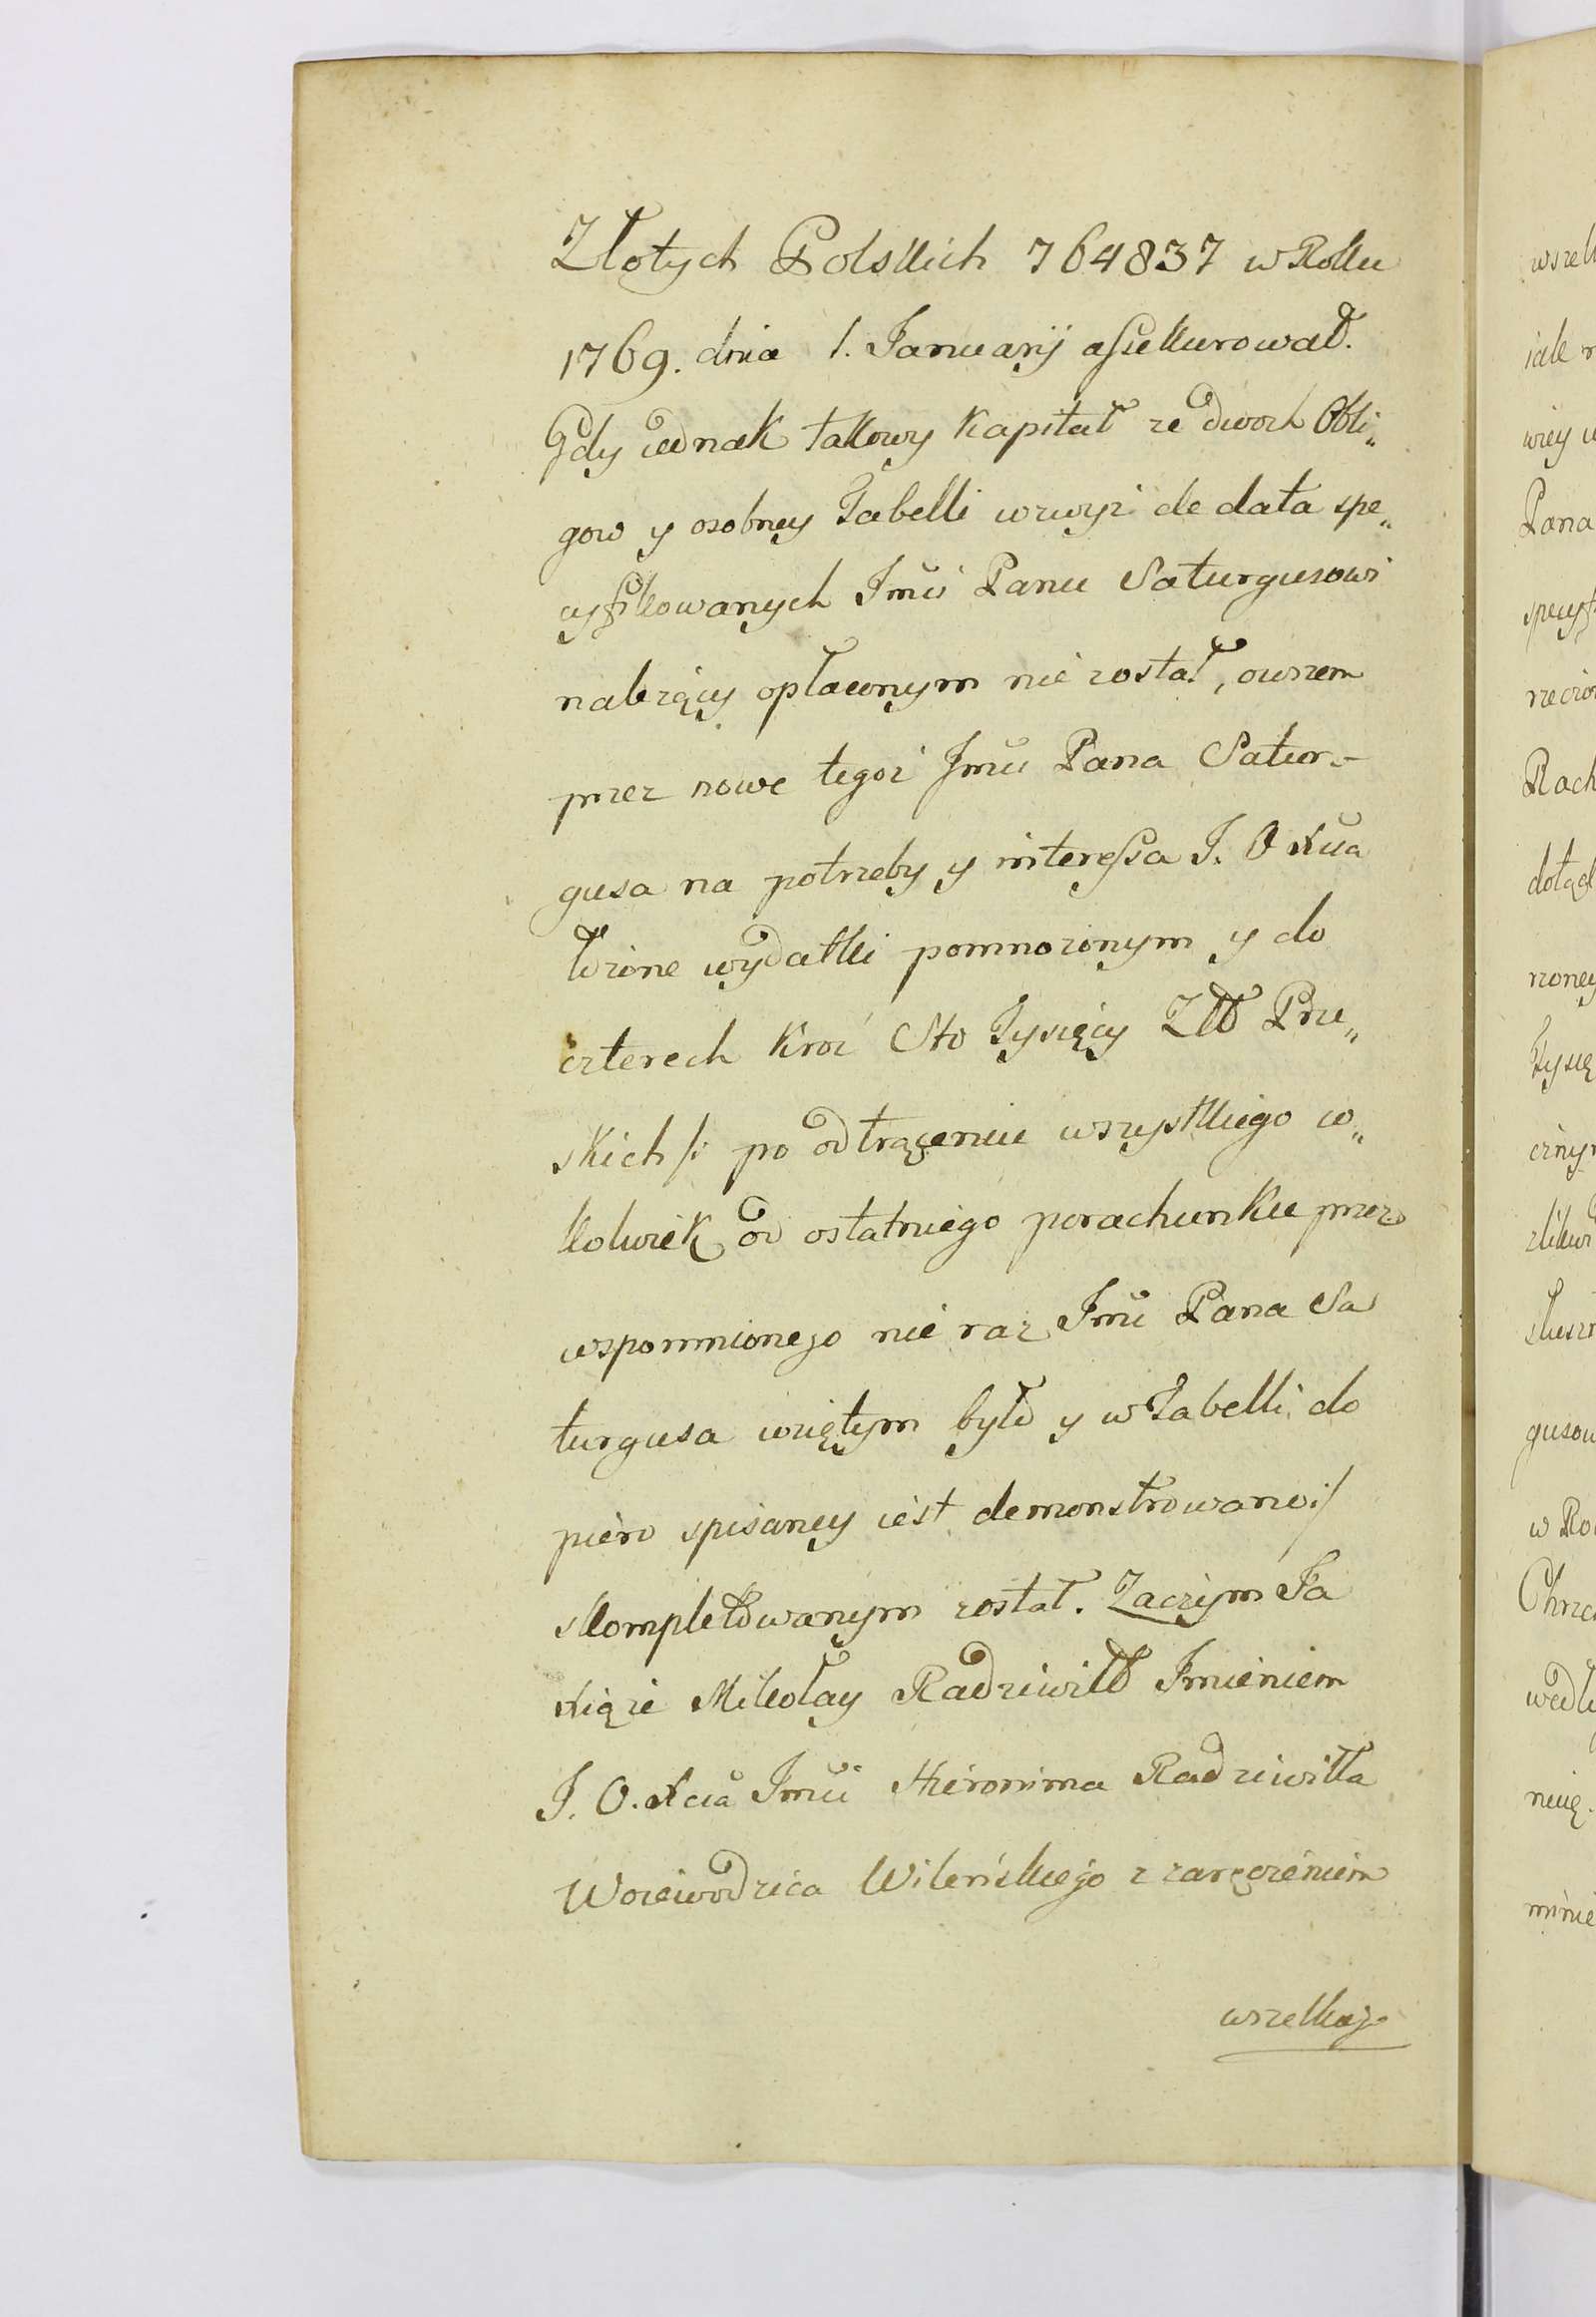 Złotych Polskich 764837 w Roku
1769. dnia 1. Januarij assekurował.
Gdy iednak takowy Kapitał ze dwoch Obli„
gow y osobney Tabelli wzwyż de data spe„
cyfikowanych Jmći Panu Saturgusowi
należący opłaconym nie został, owszem
przez nowe tegoż Jmći Pana Satur-
gusa na potrzeby y interessa J. O Xcia
łożone wydatki pomnożonym y do
czterech Kroć Sto Tysięcy Złł Pru„
skich /: po odtrąceniu wszystkiego co„
kolwiek od ostatniego porachunku przez
wspomnionego nie raz Jmći Pana Sa
turgusa wziętym było y w Tabelli do
piero spisaney iest demonstrowano :/
skompletowanym został. Zaczym Ja
Xiąże Mikołay Radziwiłł Jmieniem
J. O. Xcia Jmći Hieronima Radziwiłła
Woiewodzica Wileńskiego z zaręczeniem
wszelkiego
wszelk
iale
wiey
Pana
specyf
rzeczo
Rach
dotąd
rzoney
Tysię
cznym
zlikwi
słuszn
gusow
w Ro
Chrze
wedłu
niuę.
mmie